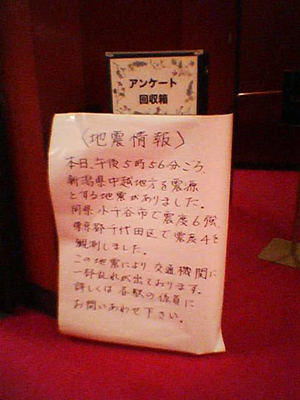 アンケート
回収箱
〈地震情報〉
本日、午後5時56分ころ、
新潟県中越地方を震源
とする地震がありました。
同県小千谷市で震度6強、
東京都千代田区で震度4を
観測しました。
この地震により、交通機関に
一部乱れが出ております。
詳しくは各駅の係員に
お問いあわせ下さい。